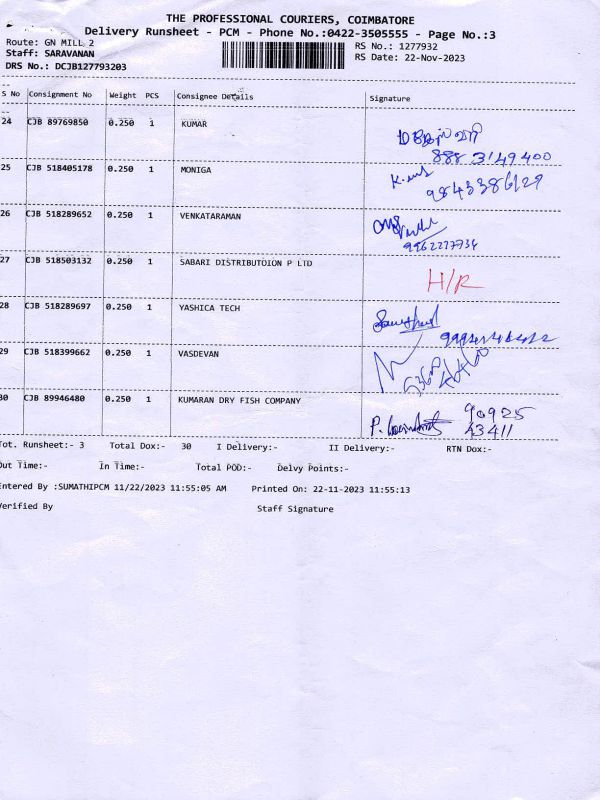 THE PROFESSIONAL COURIERS, COIMBATORE
Delivery Runsheet - PCM - Phone No.:0422-3505555 - Page No.:3
Route: GN MILL 2
RS No.: 1277932
Staff: SARAVANAN
RS Date: 22-Nov-2023
DRS No.: DCJB127793203
S No Consignment No Weight PCS Consignee Details Signature
24 CJB 89769850 0.250 1 KUMAR
888 3149400
25 CJB 518405178 0.250 1 MONIGA
9843386129
26 CJB 518289652 0.250 1 VENKATARAMAN
9962277934
27 CJB 518503132 0.250 1 SABARI DISTRIBUTOION P LTD
H/R
28 CJB 518289697 0.250 1 YASHICA TECH
29 CJB 518399662 0.250 1 VASDEVAN
30 CJB 89946480 0.250 1 KUMARAN DRY FISH COMPANY
P. 90925
43411
Tot. Runsheet:- 3 Total Dox:- 30 I Delivery:- II Delivery:- RTN Dox:-
Out Time:- In Time:- Total POD:- Delvy Points:-
Entered By :SUMATHIPCM 11/22/2023 11:55:05 AM Printed On: 22-11-2023 11:55:13
Verified By Staff Signature